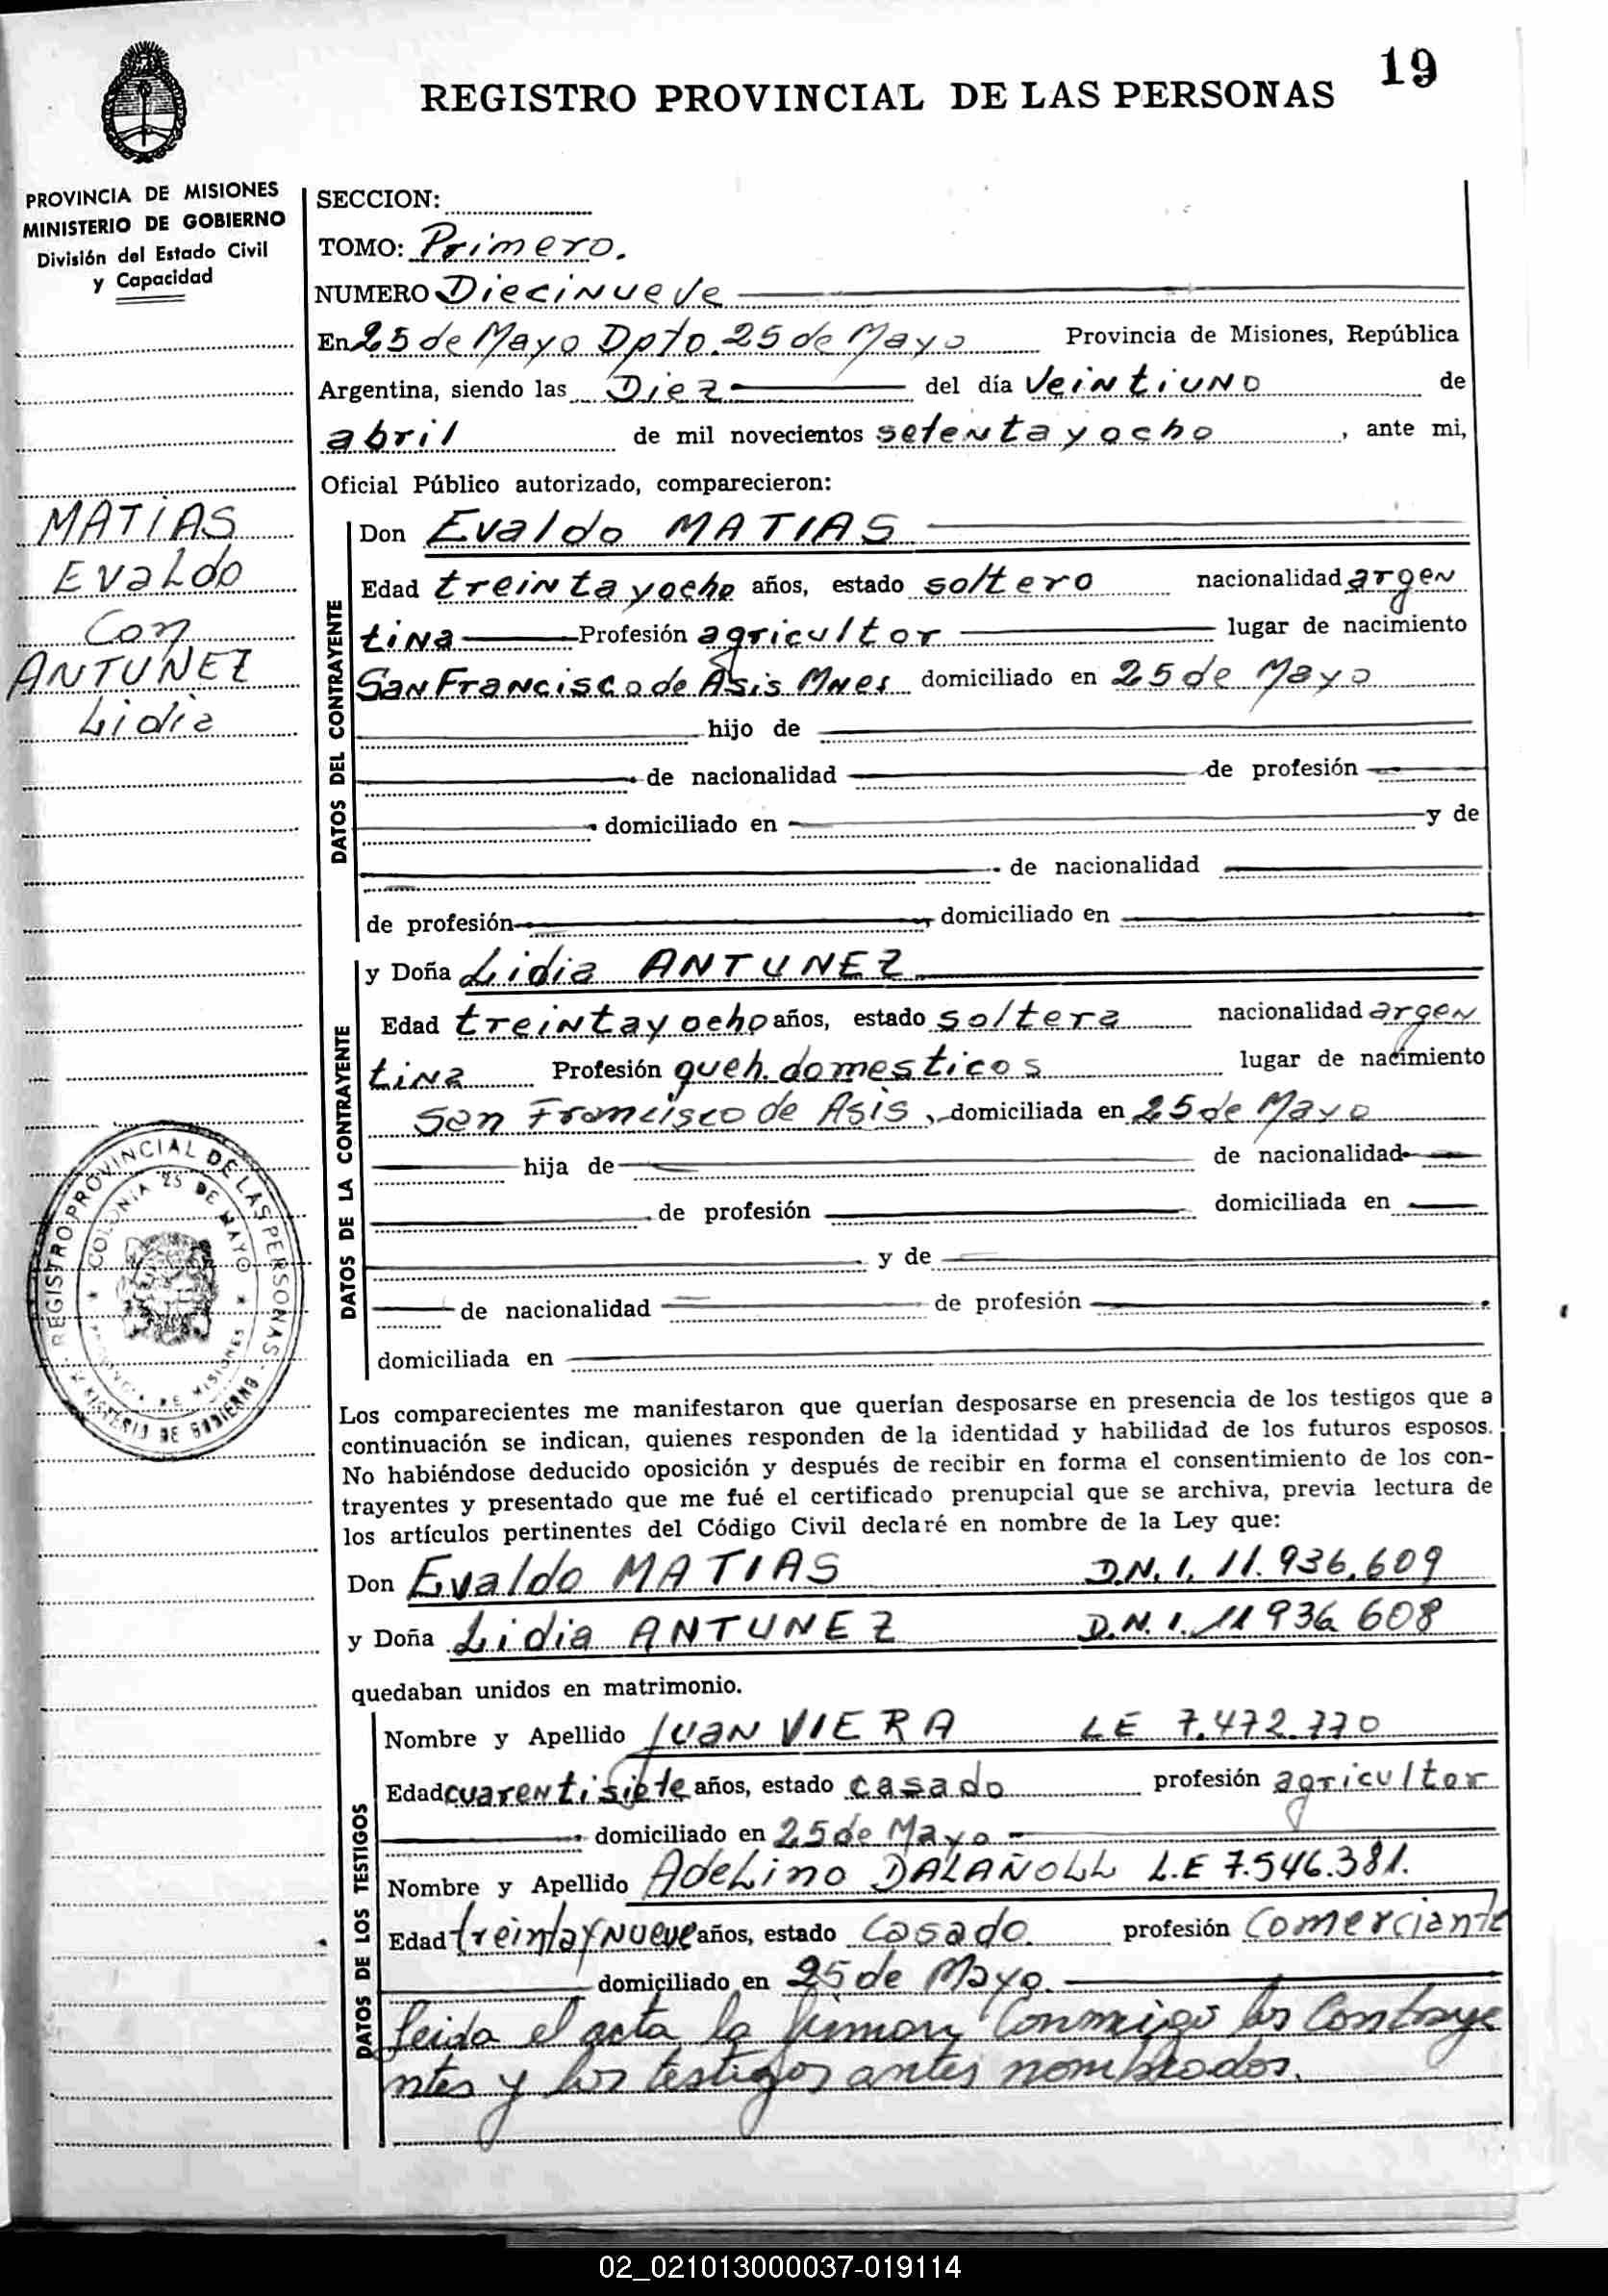 19
REGISTRO PROVINCIAL DE LAS PERSONAS
PROVINCIA DE MISIONES
MINISTERIO DE GOBIERNO
División del Estado Civil
y Capacidad
MATIAS
Evaldo
Con
ANTUNEZ
Lidia
REGISTRO PROVINCIAL DE LAS PERSONAS
MINISTERIO DE GOBIERNO
COLONIA 25 DE MAYO
PROVINCIA DE MISIONES
SECCION:
TOMO: Primero.
NUMERO Diecinueve
En 25 de Mayo Dpto. 25 de Mayo Provincia de Misiones, República
Argentina, siendo las Diez del día Veintiuno de
abril de mil novecientos setenta y ocho, ante mi,
Oficial Público autorizado, comparecieron:
DATOS DEL CONTRAYENTE
Don Evaldo MATIAS
Edad treinta y ocho años, estado soltero nacionalidad argen
tina Profesión agricultor lugar de nacimiento
San Francisco de Asis Mnes domiciliado en 25 de Mayo
hijo de
de nacionalidad de profesión
domiciliado en y de
de nacionalidad
de profesión, domiciliado en
DATOS DE LA CONTRAYENTE
y Doña Lidia ANTUNEZ
Edad treinta y ocho años, estado soltera nacionalidad argen
tina Profesión queh. domesticos lugar de nacimiento
San Francisco de Asis, domiciliada en 25 de Mayo
hija de de nacionalidad
de profesión domiciliada en
y de
de nacionalidad de profesión
domiciliada en
Los comparecientes me manifestaron que querían desposarse en presencia de los testigos que a
continuación se indican, quienes responden de la identidad y habilidad de los futuros esposos.
No habiéndose deducido oposición y después de recibir en forma el consentimiento de los con-
trayentes y presentado que me fué el certificado prenupcial que se archiva, previa lectura de
los artículos pertinentes del Código Civil declaré en nombre de la Ley que:
Don Evaldo MATIAS D.N.I. 11.936.609
y Doña Lidia ANTUNEZ D.N.I. 11936608
quedaban unidos en matrimonio.
DATOS DE LOS TESTIGOS
Nombre y Apellido Juan VIERA LE 7.472.770
Edad cuarentisiete años, estado casado profesión agricultor
domiciliado en 25 de Mayo
Nombre y Apellido Adelino DALAÑOLL L.E 7.546.381.
Edad treinta y nueve años, estado Casado profesión Comerciante
domiciliado en 25 de Mayo.
leida el acta la firman Conmigo los Contraye
ntes y los testigos antes nombrados.
02_021013000037-019114